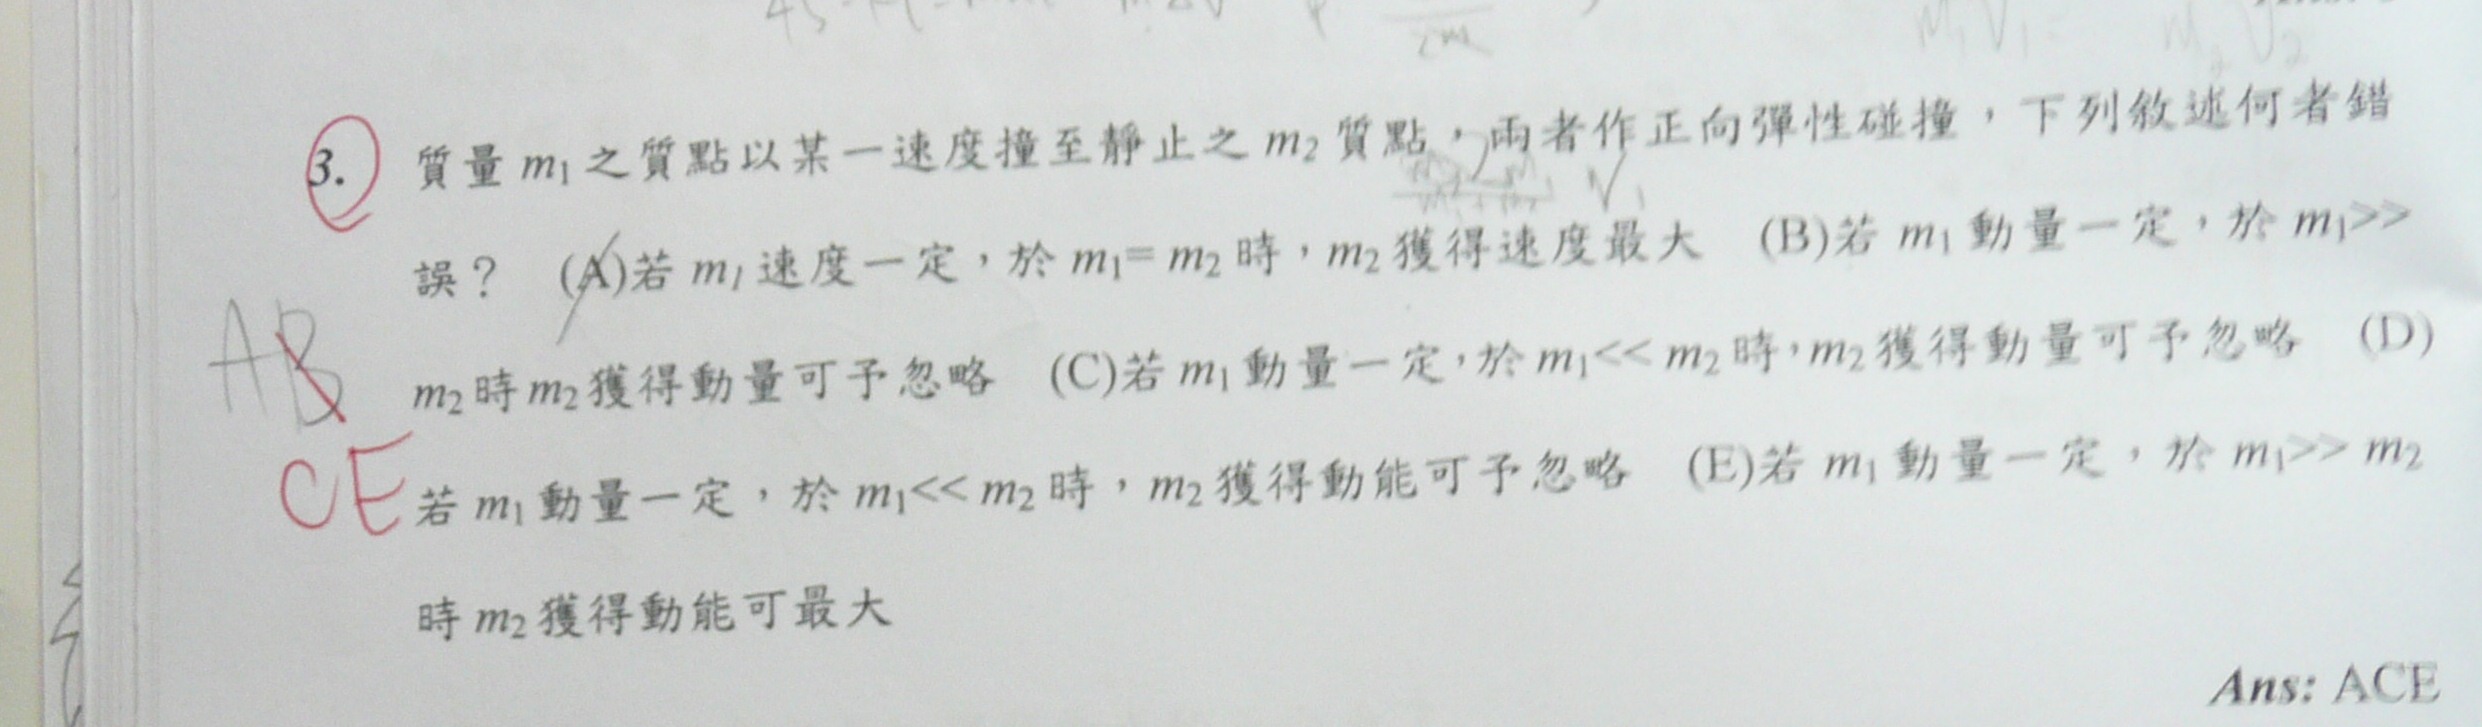 2m
m₁V₁= m₂V₂
3. 質量 m₁ 之質點以某一速度撞至靜止之 m₂ 質點，兩者作正向彈性碰撞，下列敘述何者錯
V₁
誤？ (A)若 m₁ 速度一定，於 m₁= m₂ 時，m₂ 獲得速度最大 (B)若 m₁ 動量一定，於 m₁>>
AB
m₂ 時 m₂ 獲得動量可予忽略 (C)若 m₁ 動量一定，於 m₁<< m₂ 時，m₂ 獲得動量可予忽略 (D)
CE
若 m₁ 動量一定，於 m₁<< m₂ 時，m₂ 獲得動能可予忽略 (E)若 m₁ 動量一定，於 m₁>> m₂
時 m₂ 獲得動能可最大
Ans: ACE